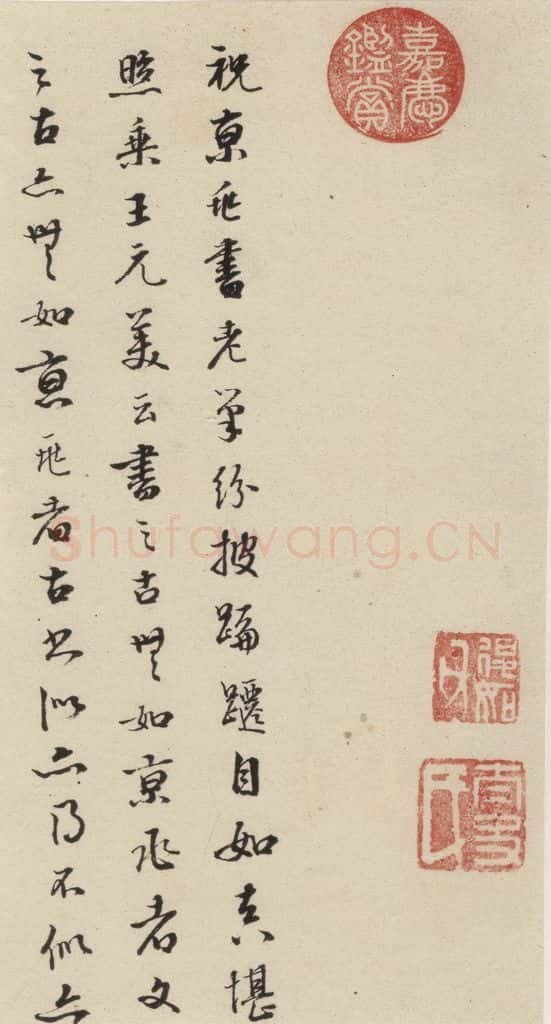 嘉慶鑑賞
祝京兆書老筆紛披蹁躚自如真堪
照乘王元美云書之古無如京兆者文
之古亦無如京兆者古書似亦得不似亦
Shufawang.CN